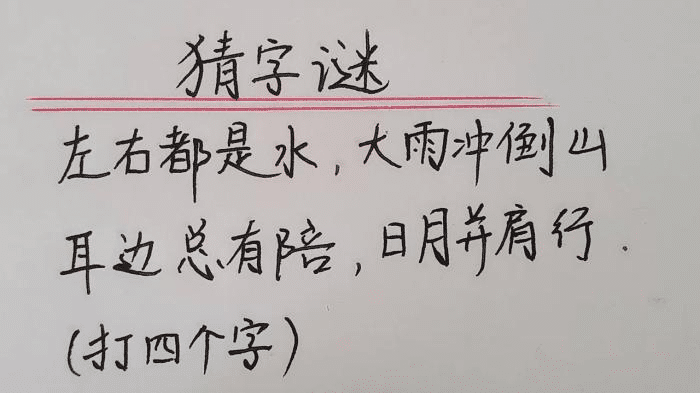 猜字谜
左右都是水，大雨冲倒山
耳边总有陪，日月并肩行.
(打四个字)